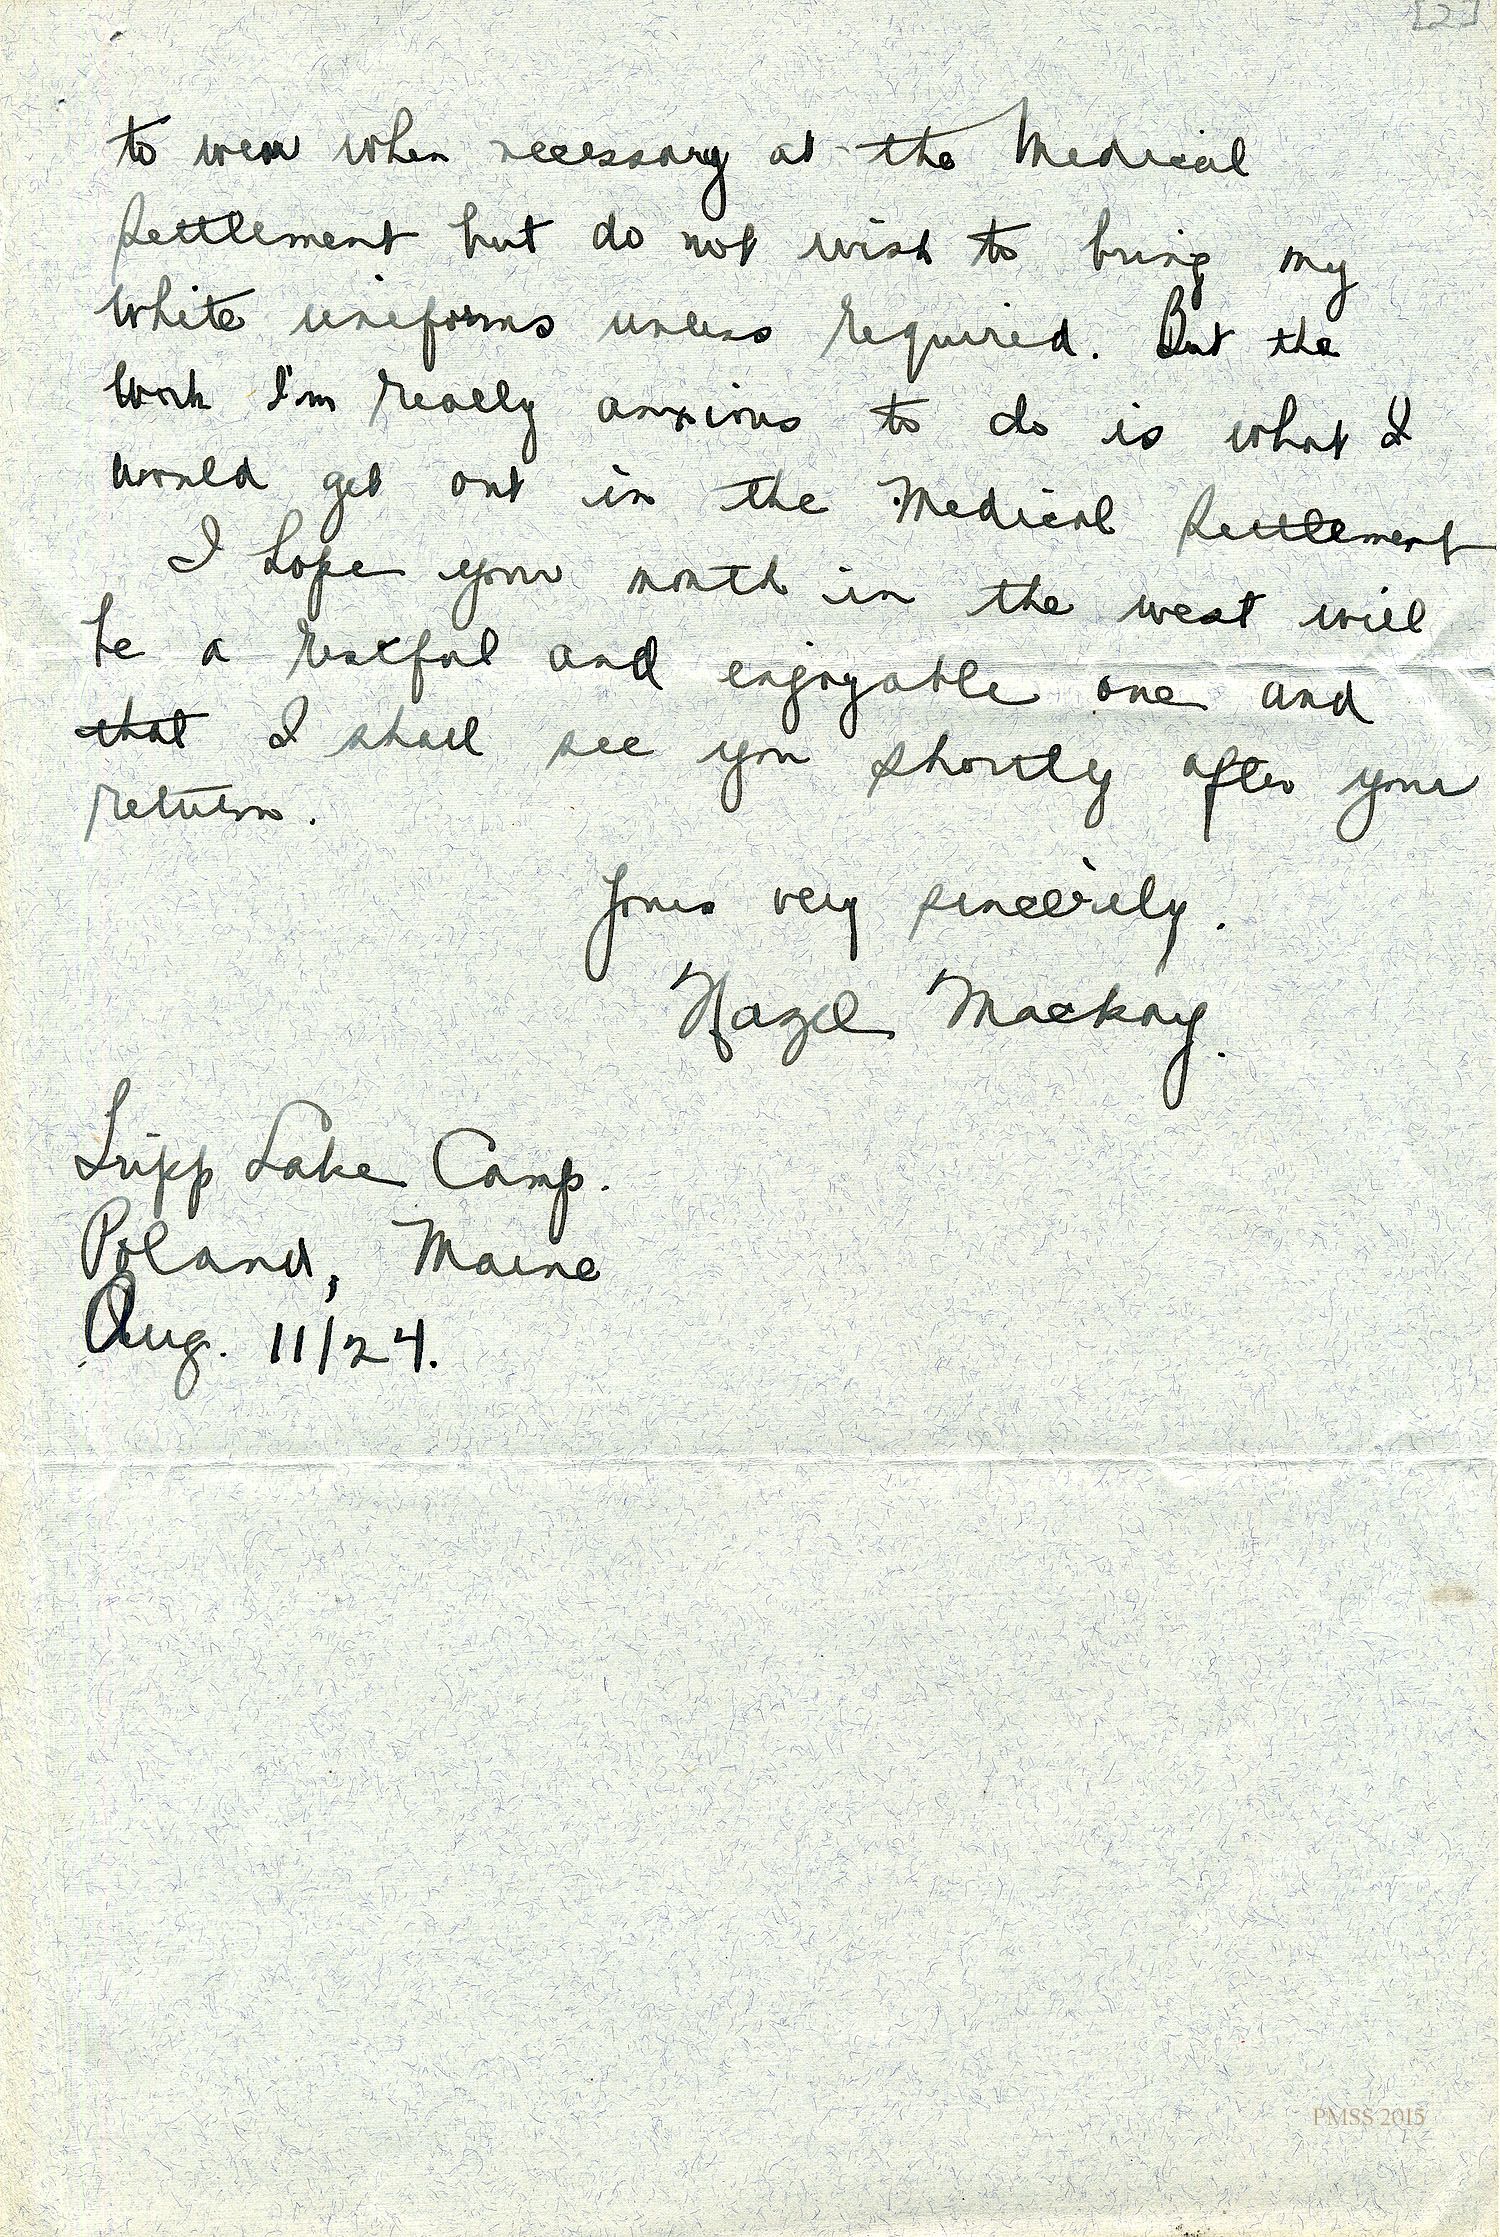 [2]
to wear when necessary at the Medical
Settlement but do not wish to bring my
white uniforms unless required. But the
work I'm really anxious to do is what I
would get out in the Medical Settlement
I hope your month in the west will
be a restful and enjoyable one and
that I shall see you shortly after your
return.
Yours very sincerely.
Hazel Mackay.
Tripp Lake Camp.
Poland, Maine
Aug. 11/24.
PMSS 2015